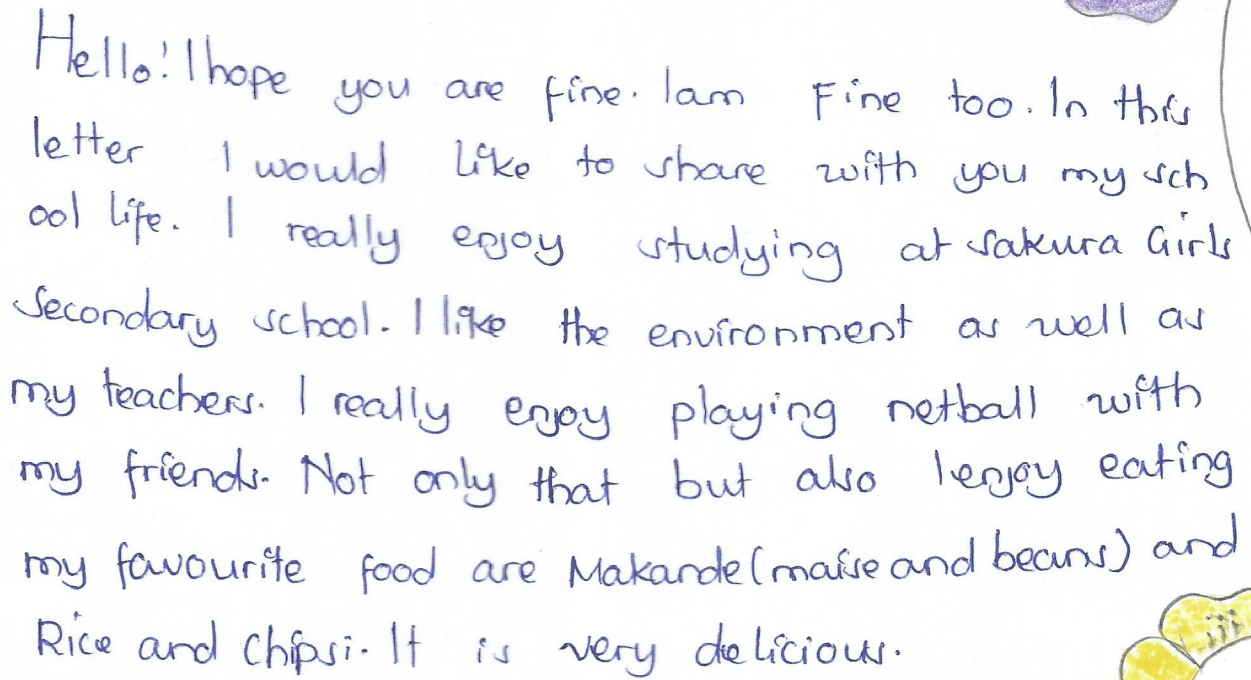 Hello! I hope you are fine. Iam Fine too. In this
letter I would like to share with you my sch
ool life. I really enjoy studying at Sakura Girls
Secondary school. I like the environment as well as
my teachers. I really enjoy playing netball with
my friends. Not only that but also I enjoy eating
my favourite food are Makande (maise and beans) and
Rice and Chipsi. It is very delicious.